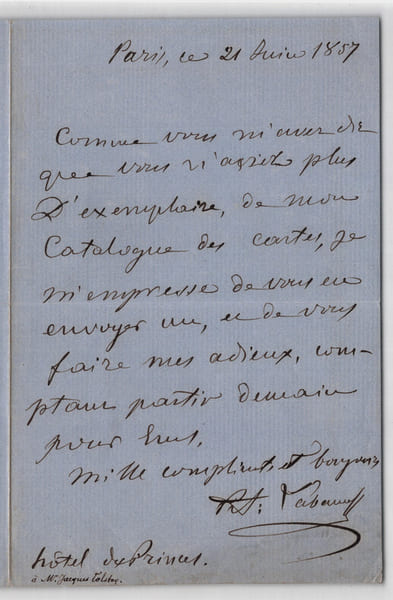 Paris, ce 21 Juin 1857
Comme vous m'avez dit
que vous n'aviez plus
D'exemplaire, de mon
Catalogue des cartes, je
m'empresse de vous en
envoyer un, et de vous
faire mes adieux, com-
ptant partir demain
pour Ems.
Mille compliments et
hôtel des Princes.
à Mr. Jacques Tolstoy.